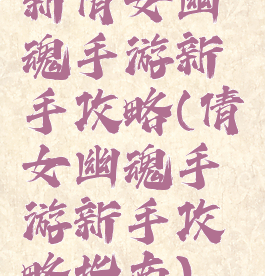 新倩女幽
魂手游新
手攻略(倩
女幽魂手
游新手攻
略指南)